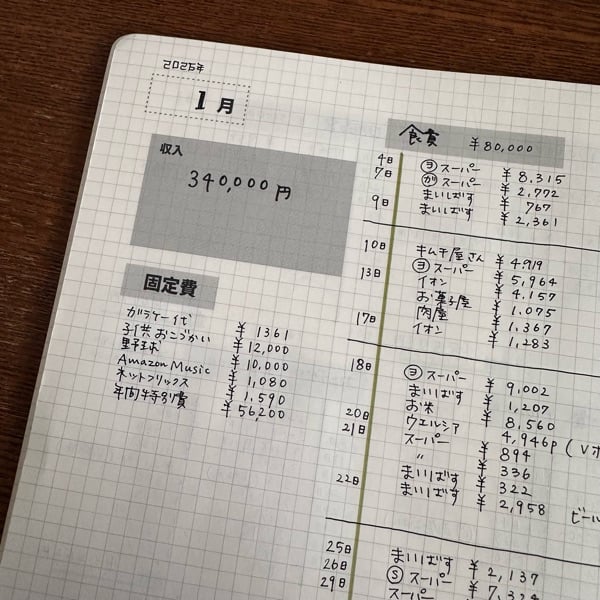 2025年
1月
収入
340,000円
固定費
ガラケー代 ¥ 1361
子供おこづかい ¥ 12,000
野球 ¥ 10,000
Amazon Music ¥ 1,080
ネットフリックス ¥ 1,590
年間特別費 ¥ 56,200
食費 ¥80,000
4日 ヨ スーパー ¥ 8,315
7日 ガ スーパー ¥ 2,772
まいばす ¥ 767
9日 まいばす ¥ 2,361
10日 キムチ屋さん ¥ 4919
ヨ スーパー ¥ 5,964
13日 イオン ¥ 4,157
お菓子屋 ¥ 1,075
肉屋 ¥ 1,367
17日 イオン ¥ 1,283
18日 ヨ スーパー ¥ 9,002
まいばす ¥ 1,207
お米 ¥ 8,560
20日 ウエルシア 4,946P (Vポ
21日 スーパー ¥ 894
〃 ¥ 336
まいばす ¥ 322
22日 まいばす ¥ 2,958 ビール
25日 まいばす ¥ 2,137
26日 S スーパー ¥ 7,324
29日 スーパー